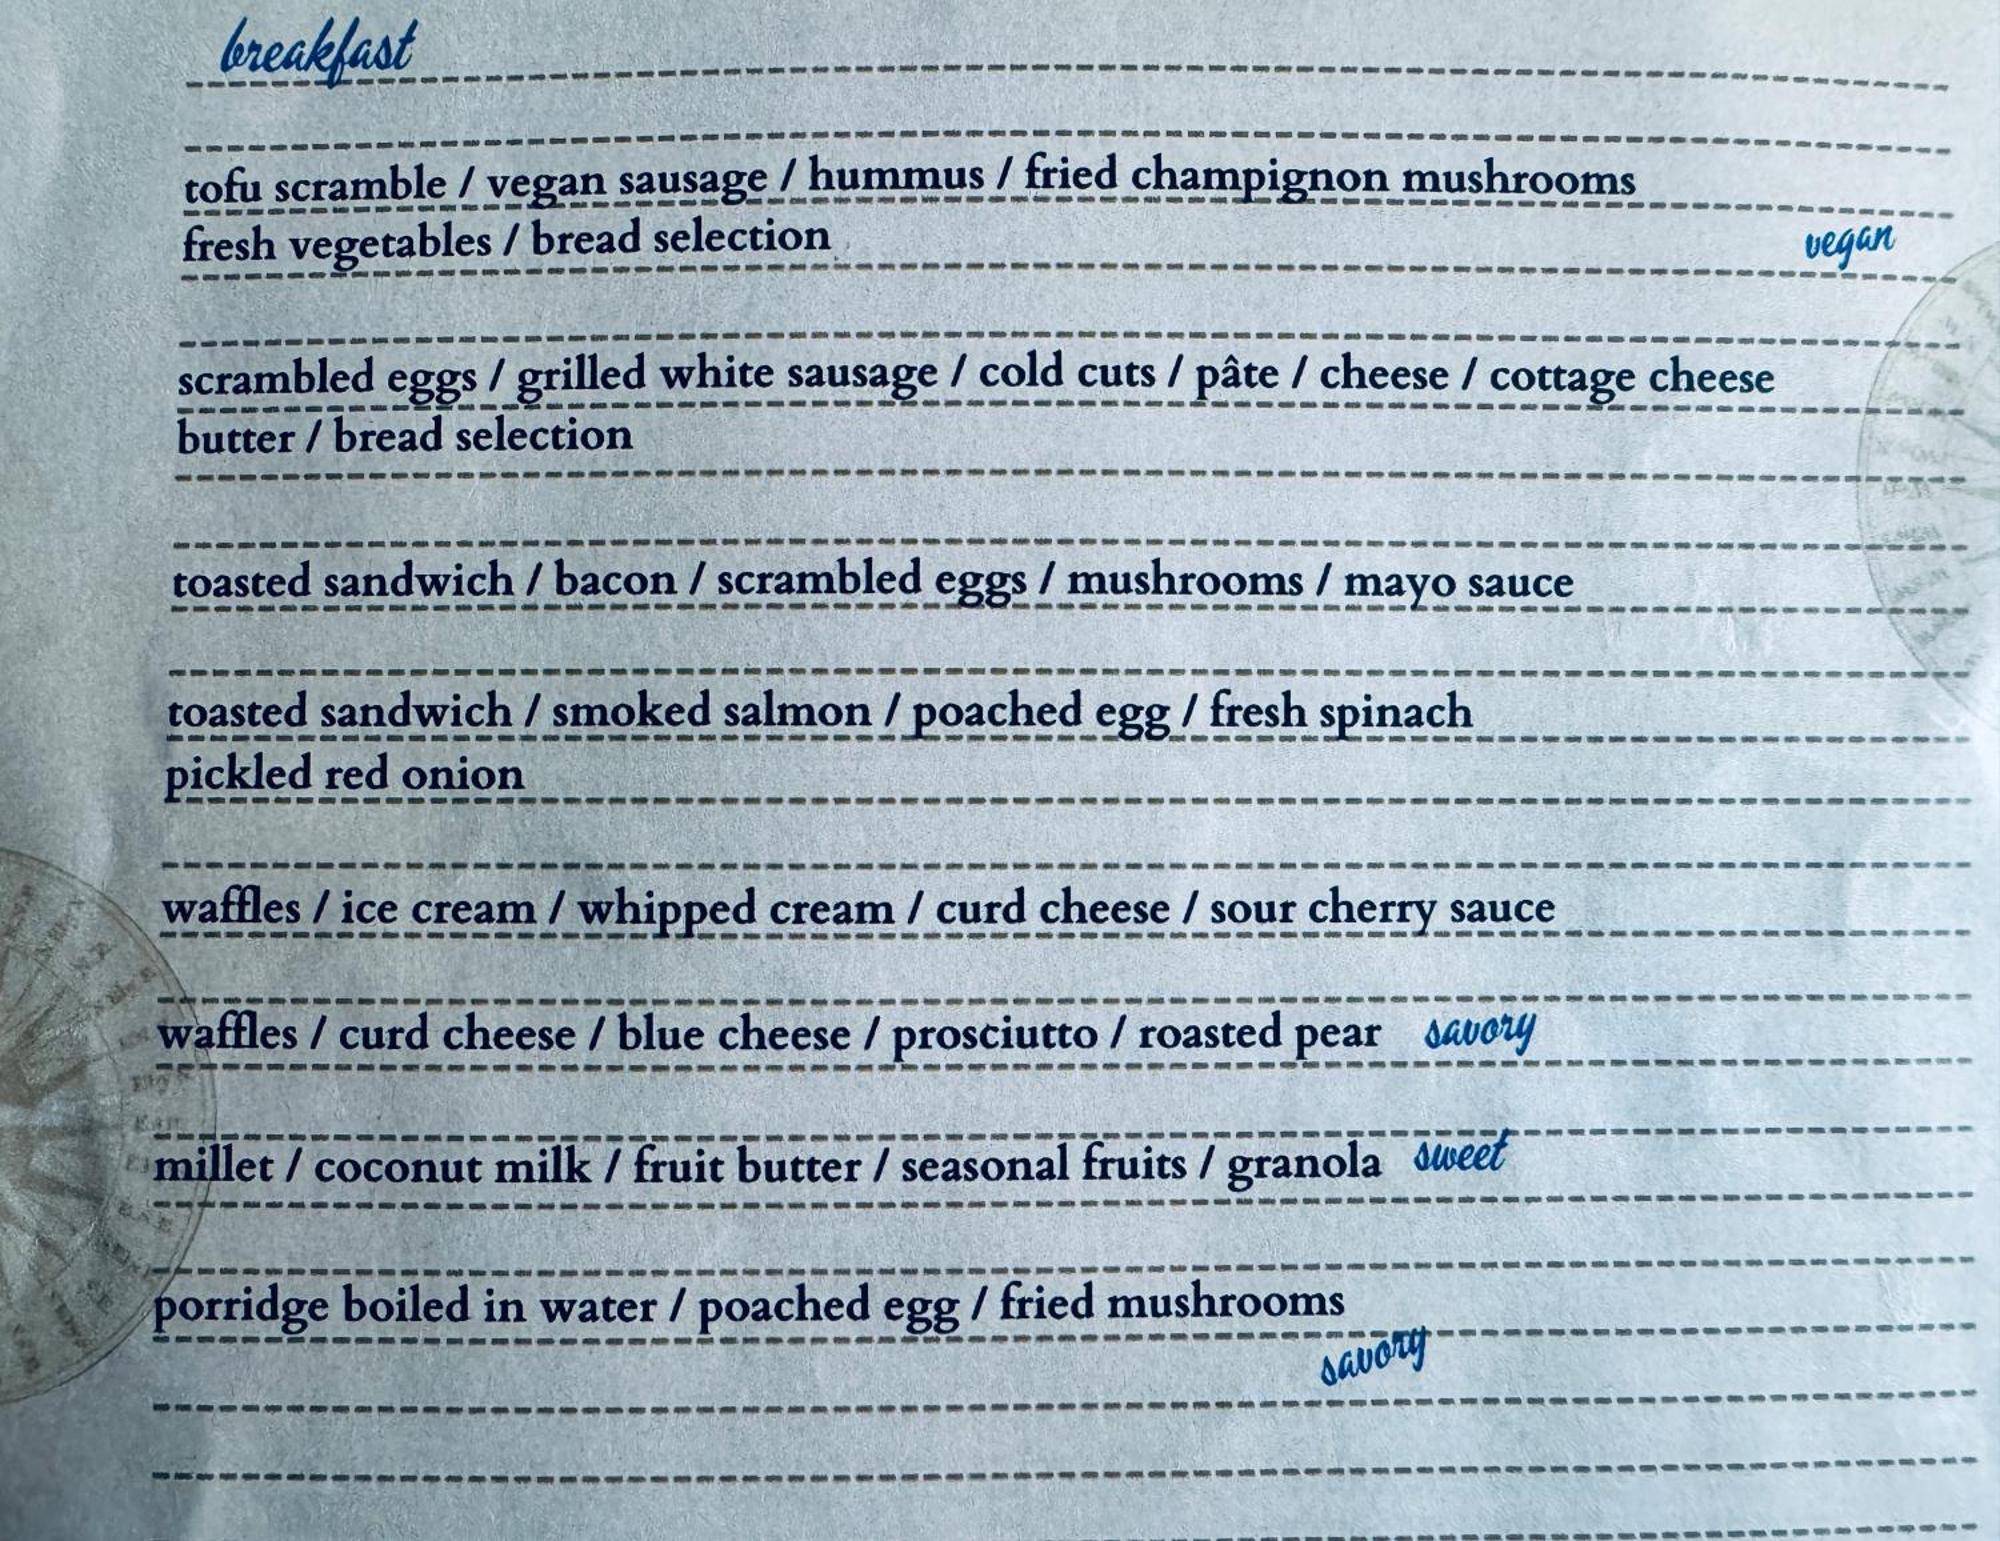 breakfast
tofu scramble / vegan sausage / hummus / fried champignon mushrooms
fresh vegetables / bread selection vegan
scrambled eggs / grilled white sausage / cold cuts / pâte / cheese / cottage cheese
butter / bread selection
toasted sandwich / bacon / scrambled eggs / mushrooms / mayo sauce
toasted sandwich / smoked salmon / poached egg / fresh spinach
pickled red onion
waffles / ice cream / whipped cream / curd cheese / sour cherry sauce
waffles / curd cheese / blue cheese / prosciutto / roasted pear savory
millet / coconut milk / fruit butter / seasonal fruits / granola sweet
porridge boiled in water / poached egg / fried mushrooms
savory